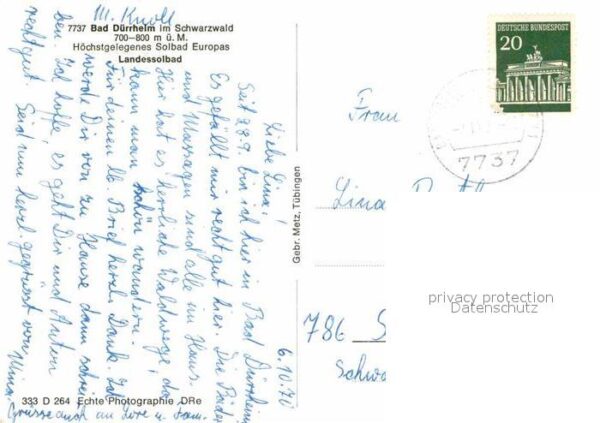 M. Knoll
7737 Bad Dürrheim im Schwarzwald
700–800 m ü. M.
Höchstgelegenes Solbad Europas
Landessolbad
6.10.70
Liebe Lina!
Seit 28.9. bin ich hier in Bad Dürrheim
Es gefällt mir recht gut hier. Die Bäder
und Massagen sind alle im Haus.
Hier hat es herrliche Waldwege, da
kann man schön wandern.
Für deinen lb. Brief herzl. Dank. Ich
werde Dir von zu Hause dann schrei-
ben. Ich hoffe, es geht Dir und Anton
recht gut. Seid nun herzl. gegrüsst von
Mina.
Grüsse auch an Lore u. Fam.
333 D 264 Echte Photographie DRe
Gebr. Metz, Tübingen
DEUTSCHE BUNDESPOST
20
7737
Frau
Lina
786 S
Schw
privacy protection
Datenschutz